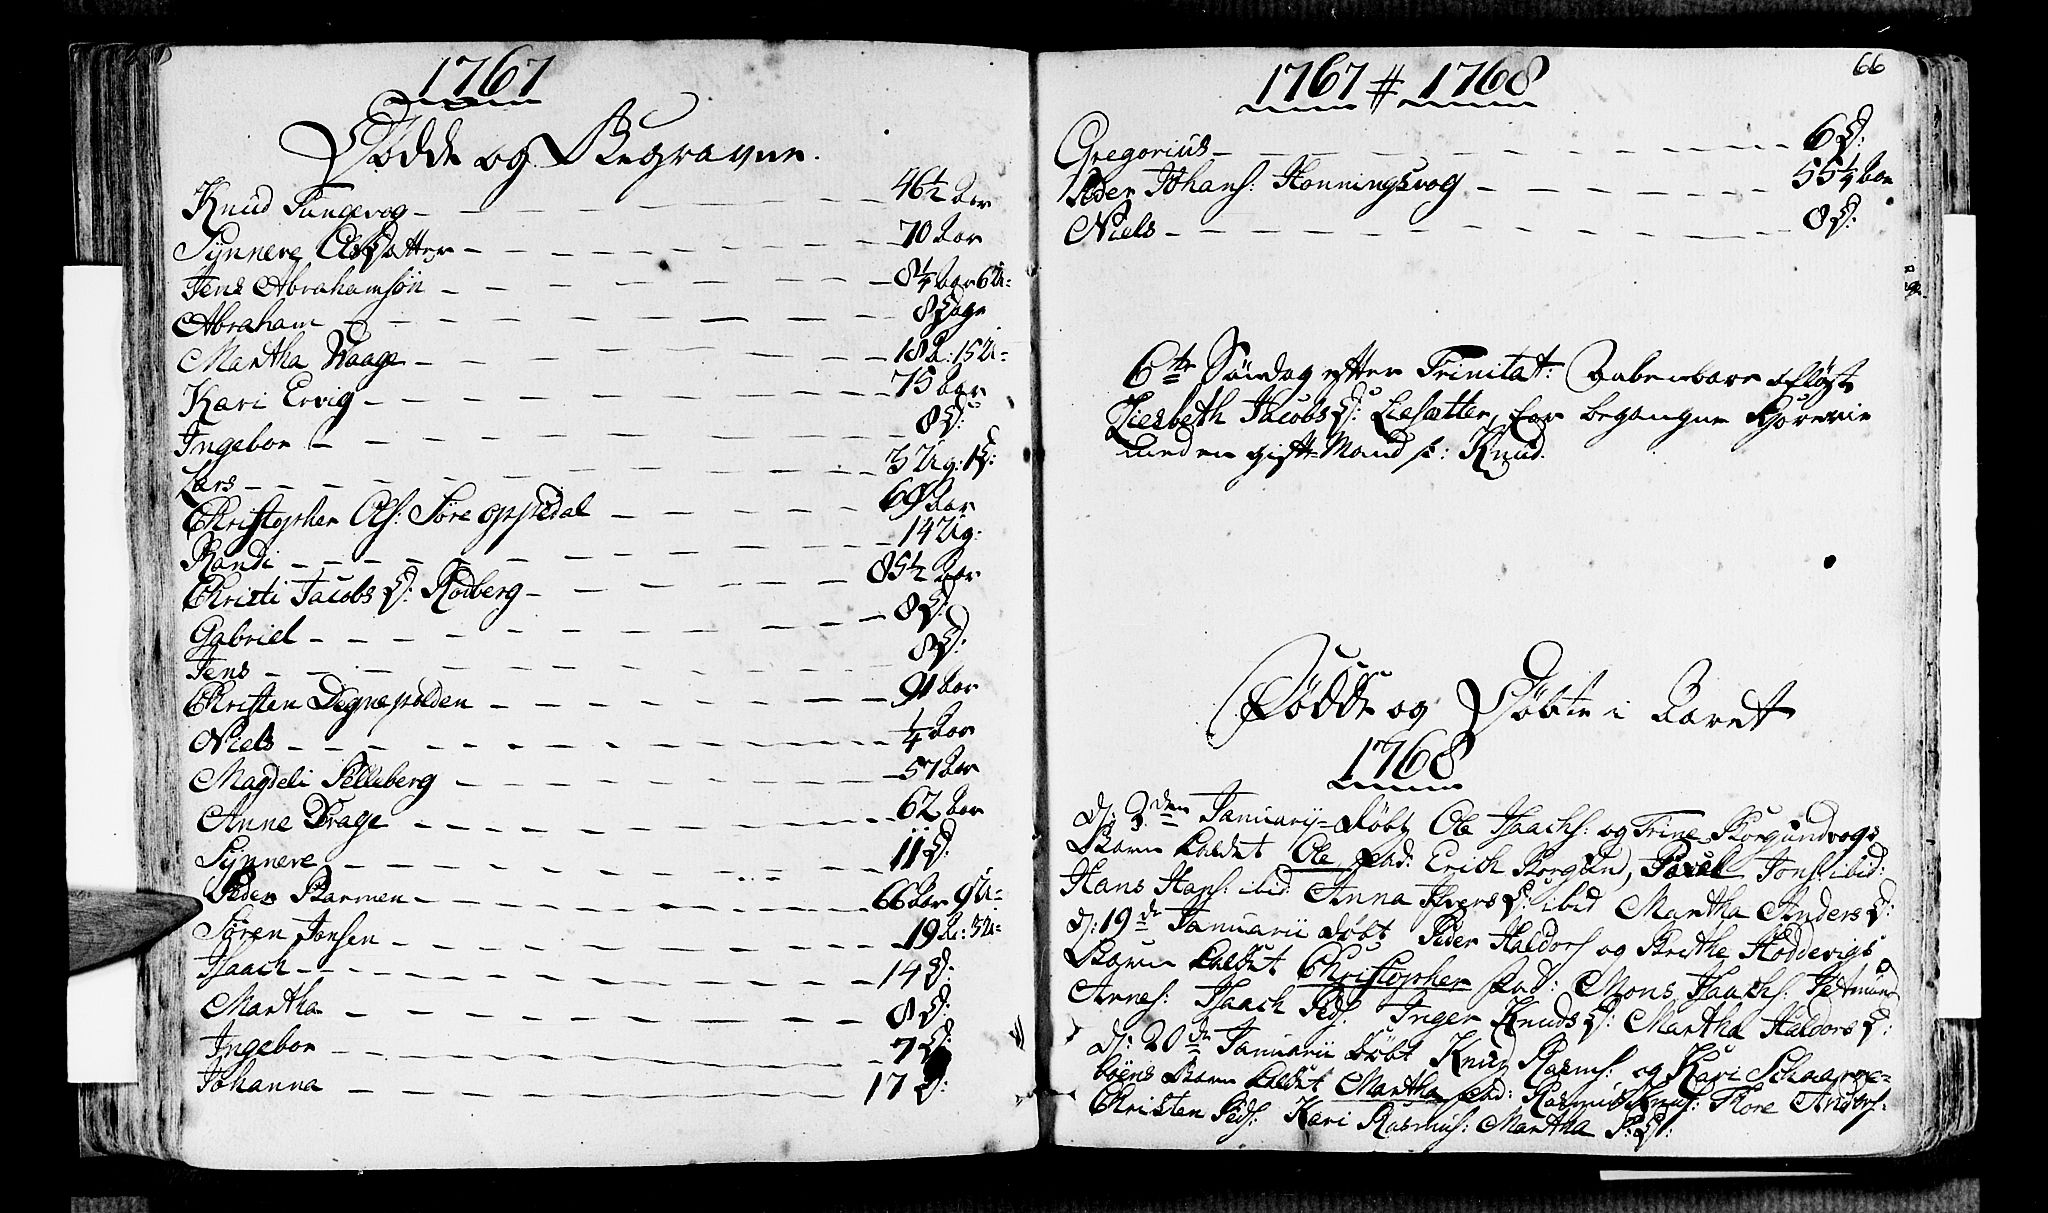 1767
Døde og Begravne.
Knud Pungevog - 46½ Aar
Synneve OlsDatter - 70 Aar
Jens Abrahamsøn - 8¼ Aar 6 U-
Abraham - 8 Dage
Martha Waage - 18 A: 15 U-
Kari Ervig - 75 Aar
Ingebor - 8 D:
Lars - 3 Ug: 1 D:
Christopher Ols: Søre oppedal - Aar
Randi - 14 Ug:
Christi Jacobs D: Rødberg - 85½ Aar
Gabriel - 8 D:
Jens - 8 D:
Christen Degnepolden - 91 Aar
Niels - ¼ Aar
Magdeli Silleberg - 57 Aar
Anne Drage - 62 Aar
Synneve - 11 D:
Peder Barmen - 66 Aar 9 U-
Søren Jonsen - 19 A: 3 U-
Isaach - 14 D:
Martha - 8 D:
Ingebor - 7 D:
Johanna - 17 D:
1767 # 1768
66
Gregorius - 6 D:
Peder Johans: Honningsvog - 55¼ Aar
Niels - 8 D:
6te Søndag efter Trinitat: Aabenbare afløst
Liesbeth Jacobs D: Liesætter, for begangne
med en gift Mand n: Knud.
Fødde og Døbte i Aaret
1768
D: 3den Januarij Døbt Ole Isaachs: og Trine Borgundvogs
Barn kaldet Ole fad: Erich Borgund, Povel Jons: ibid:
Hans Hans: ibid: Anna Ivers D: ibid Martha Anders D:
D: 19de Januarii Døbt Peder Haldors: og Brithe Hoddevigs
Barn kaldet Christopher fad: Mons Isaachs:
Arnes: Isaach Peds: Inger Knuds D: Martha Haldors D:
D: 20de Januarii Døbt Knud Rasms: og Kari Schaarve-
bøens Barn kaldet Martha fad: Rasmus Knuds: Thore Anders:
Christen Peds: Kari Rasmus: Martha P: D: